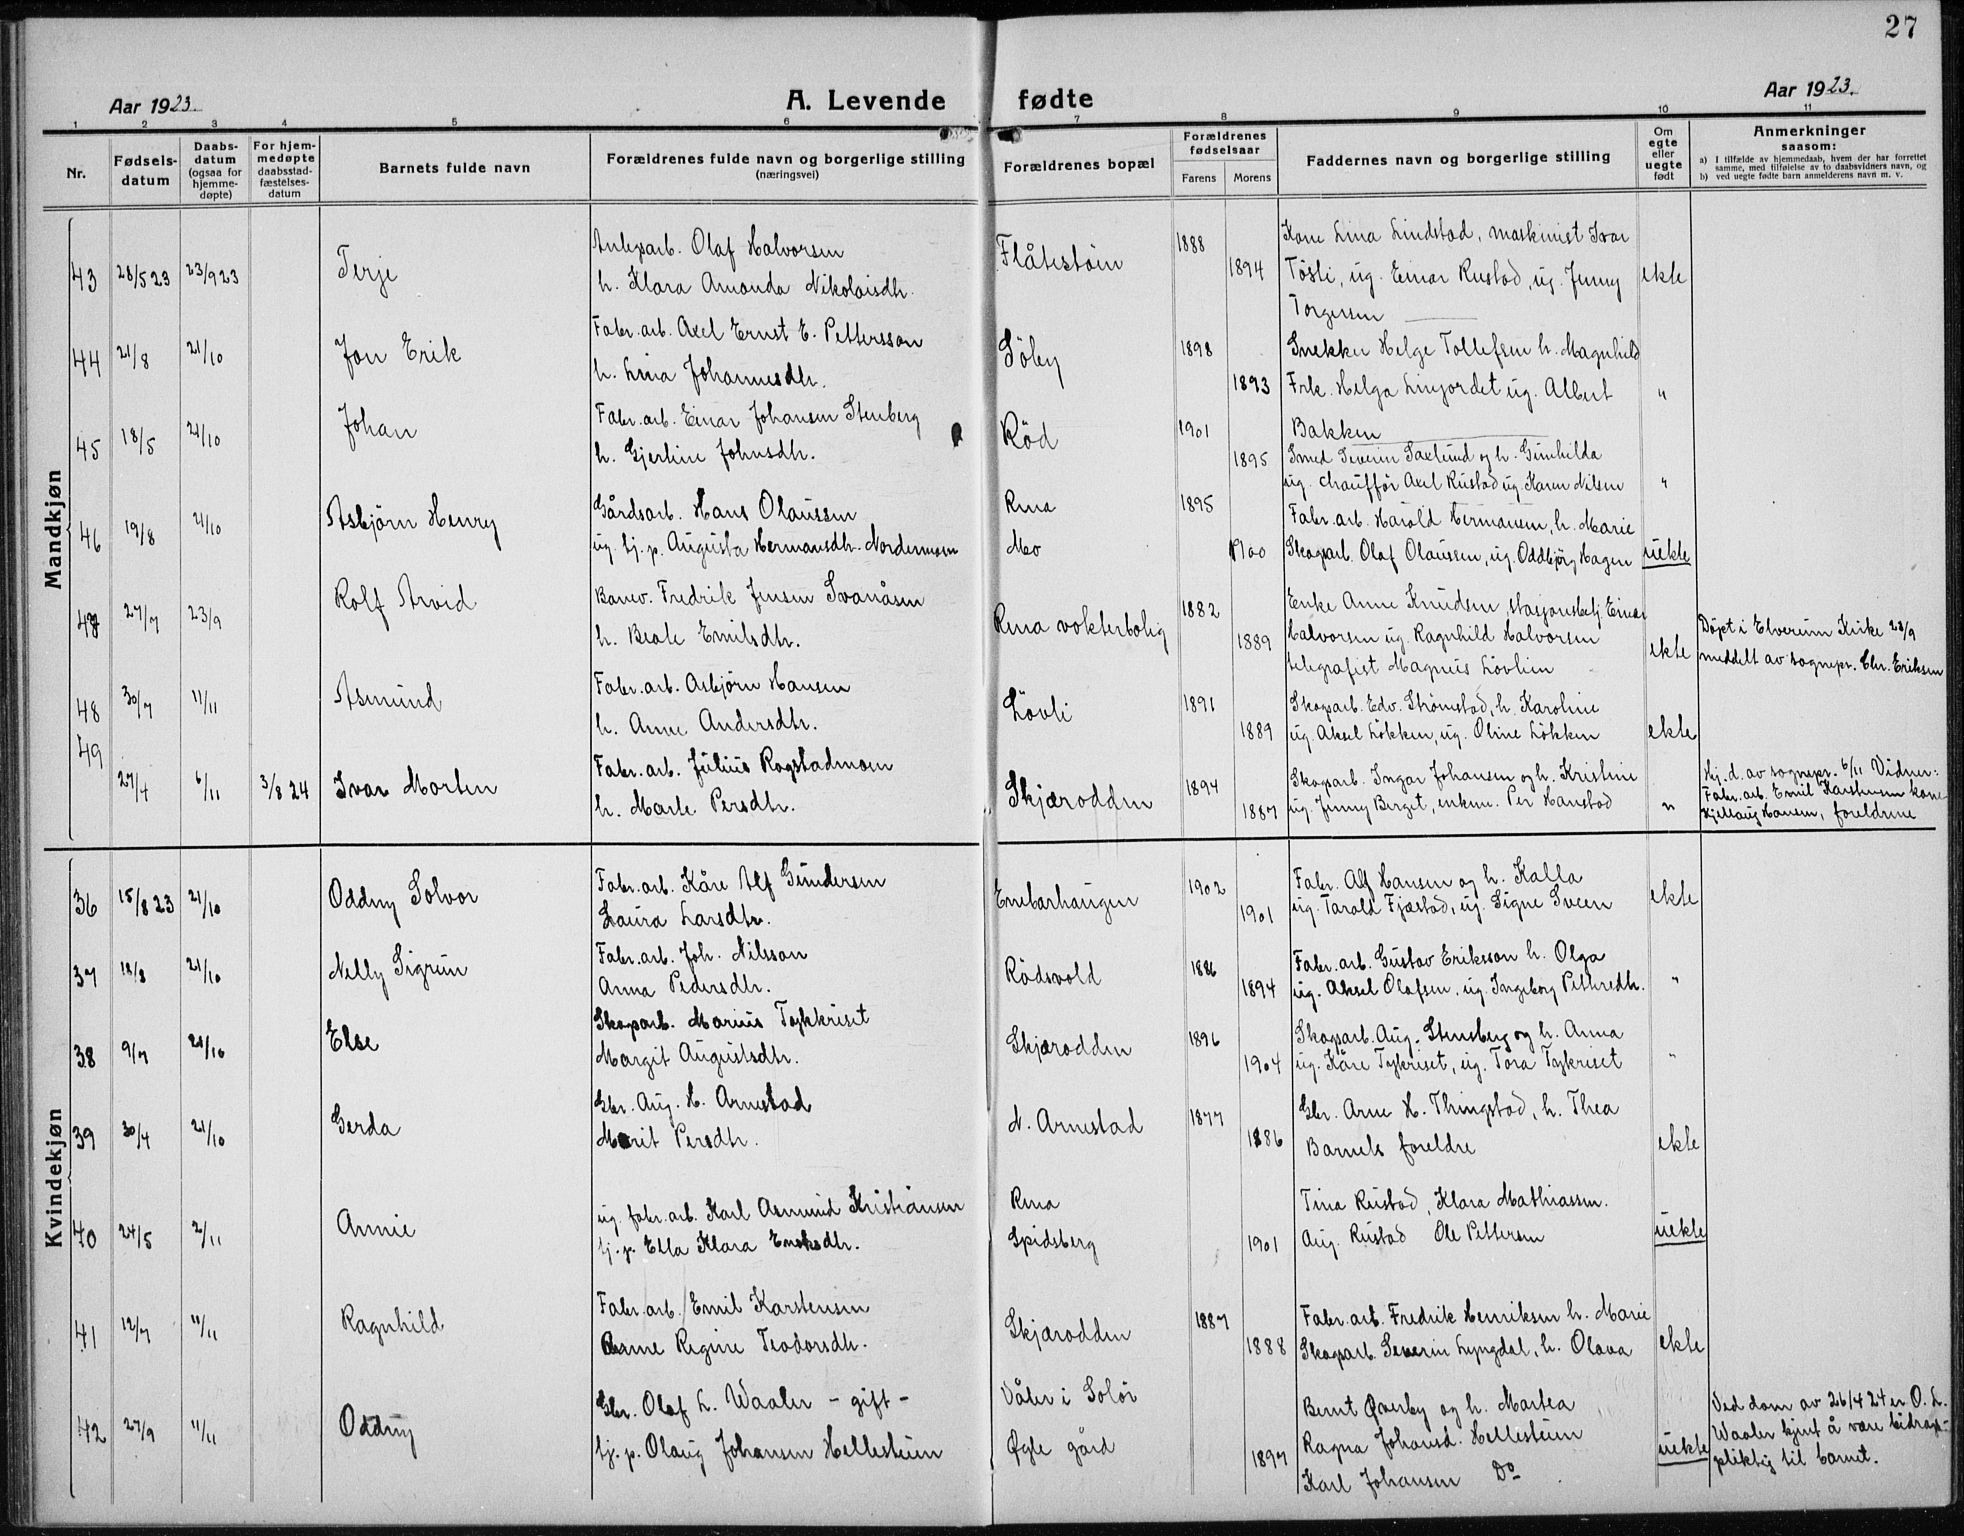 27
Aar 1923. A. Levende fødte Aar 1923.
1 2 3 4 5 6 7 8 9 10 11
Nr. Fødselsdatum Daabsdatum (ogsaa for hjemmedøpte) For hjemmedøpte daabsstadfæstelsesdatum Barnets fulde navn Forældrenes fulde navn og borgerlige stilling (næringsvei) Forældrenes bopæl Forældrenes fødselsaar Farens Morens Faddernes navn og borgerlige stilling Om egte eller uegte født Anmerkninger saasom:
a) I tilfælde av hjemmedaab, hvem der har forrettet samme, med tilføielse av to daabsvidners navn, og
b) ved uegte fødte barn anmelderens navn m. v.
Mandkjøn
43 28/5 23 23/9 23 Terje
Olaf Halvorsen
h. Klara Amanda Nikolaisdtr.
Flåtestøin 1888 1894
Kone Lina Lindstad, maskinist Ivar
Tøsti, ug. Einar Rustad, ug. Jenny
Torgersen
ekte
44 21/8 21/10 Jon Erik
Fabr. arb. Axel Ernst E. Pettersson
h. Lina Johannesdtr.
Søby 1898 1893
Snekker Helge Tollefsen h. Magnhild
Frk. Helga Linjordet ug. Albert
Bakken
"
45 18/5 21/10 Johan
Fabr. arb. Einar Johansen Stenberg
h. Gjertine Johnsdtr.
Rød 1901 1895
Smed Severin Saxlund og h. Gunhilda
ug. chauffør Axel Rustad ug. Karen Nilsen
"
46 19/8 21/10 Asbjørn Henry
Gårdsarb. Hans Olaussen
ug. tj. p. Augusta Hermansdtr. Nordermoen
Rena
Mo
1895 1900
Fabr. arb. Harald Hermansen, h. Marie
Skogsarb. Olaf Olaussen, ug. Oddbjørg Hagen
uekte
47 27/7 23/9 Rolf Arvid
Banev. Fredrik Jensen Svanåsen
h. Beate Emilsdtr.
Rena vokterbolig 1882 1889
Enke Anne Knudsen, stasjonsbetj. Einar
Halvorsen ug. Ragnhild Halvorsen
telegrafist Magnus Løvlien
ekte
Døpt i Elverum Kirke 23/9
meddelt av sognepr. Chr. Eriksen
48 30/7 11/11 Asmund
Fabr. arb. Asbjørn Hansen
h. Anne Andersdtr.
Løvli 1891 1889
Skogsarb. Edv. Strømstad, h. Karoline
ug. Aksel Løkken, ug. Oline Løkken
ekte
49 27/4 6/11 3/8 24 Ivar Morten
Fabr. arb. Julius Rogstadmoen
h. Marte Persdtr.
Skjærodden 1894 1887
Skogsarb. Ingar Johansen og h. Kristine
ug. Jenny Berget, enkem. Per Hanstad
"
Hj. d. av sognepr. 6/11 Vidner:
Fabr. arb. Emil Karstensen kone
Kjellaug Hansen, foreldrene
Kvindekjøn
36 15/8 23 21/10 Oddny Solvor
Fabr. arb. Kåre Alf Gundersen
Laura Larsdtr.
Enebærhaugen 1902 1901
Fabr. Alf Hansen og h. Kalla
ug. Tarald Fjæstad, ug. Signe Sveen
ekte
37 18/8 21/10 Nelly Sigrun
Fabr. arb. Joh. Nilsson
Anna Pedersdtr.
Rødsvold 1886 1894
Fabr. arb. Gustav Eriksson h. Olga
ug. Aksel Olafsen, ug. Ingeborg
"
38 9/7 21/10 Else
Skogsarb. Marius Tykkriset
Margit Augustsdtr.
Skjærodden 1896 1904
Skogsarb. Aug. Stensberg og h. Anna
ug. Kåre Tykriset, ug. Tora Tykriset
"
39 30/4 21/10 Gerda
Gbr. Aug. H. Arnestad
Marit Persdtr.
N. Arnestad 1877 1886
Gbr. Arne H. Thingstad, h. Thea
Barnets foreldre
ekte
40 24/5 2/11 Annie
ug. fabr. arb. Karl Asmund Kristiansen
tj. p. Ella Klara
Rena
Spidsberg
1901
Tina Rustad, Klara Mathiassen.
Aug. Rustad Ole Pettersen
uekte
41 12/7 11/11 Ragnhild
Fabr. arb. Emil Karstensen
Anne Regine Teodorsdtr.
Skjærodden 1887 1888
Fabr. arb. Fredrik Henriksen h. Marie
Skogsarb. Severin Lyngdal, h. Olava
ekte
42 27/9 11/11 Oddny
Gbr. Olaf L. Waaler - gift -
tj. p. Olaug Johansen Hellesteien
Våler i Solør
Øgle gård
1897
Bernt Øverby og h. Martea
Ragna Johansd. Hellesteien
Karl Johansen Do
uekte
Ved dom av 26/4 24 er O. L.
Waaler kjent å være bidrags-
pliktig til barnet.